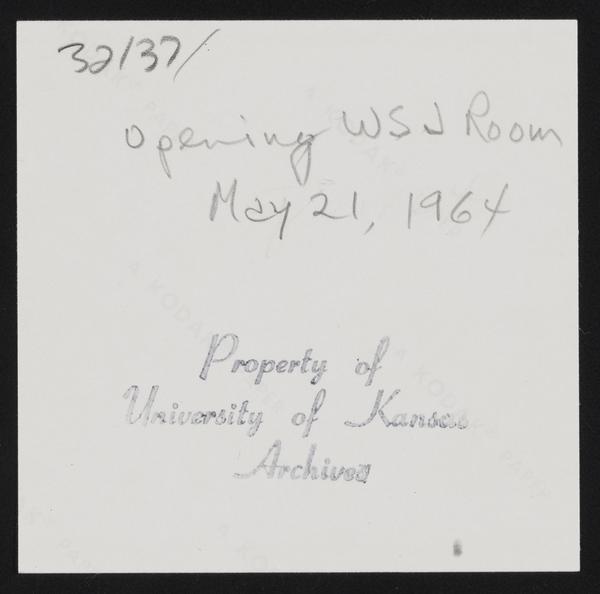 32/37/
Opening WSJ Room
May 21, 1964
Property of
University of Kansas
Archives
A KODAK PAPER
A KODAK PAPER